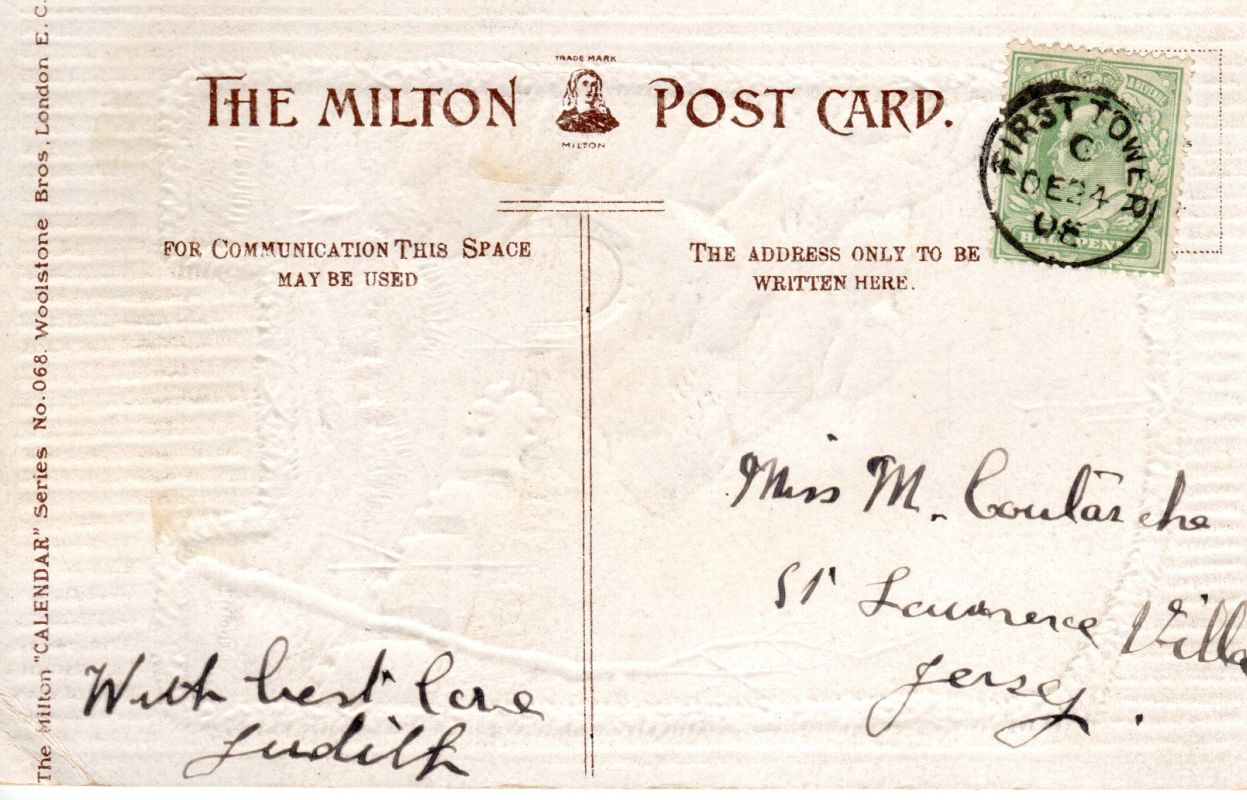 TRADE MARK
THE MILTON POST CARD.
MILTON
FOR COMMUNICATION THIS SPACE
MAY BE USED
THE ADDRESS ONLY TO BE
WRITTEN HERE.
REVENUE
HALFPENNY
FIRST TOWER
C
DE 24
08
The Milton "CALENDAR" Series No. 068. Woolstone Bros, London E. C.
Miss M. Coutanche
St Lawrence Villa
Jersey.
With best love
Judith